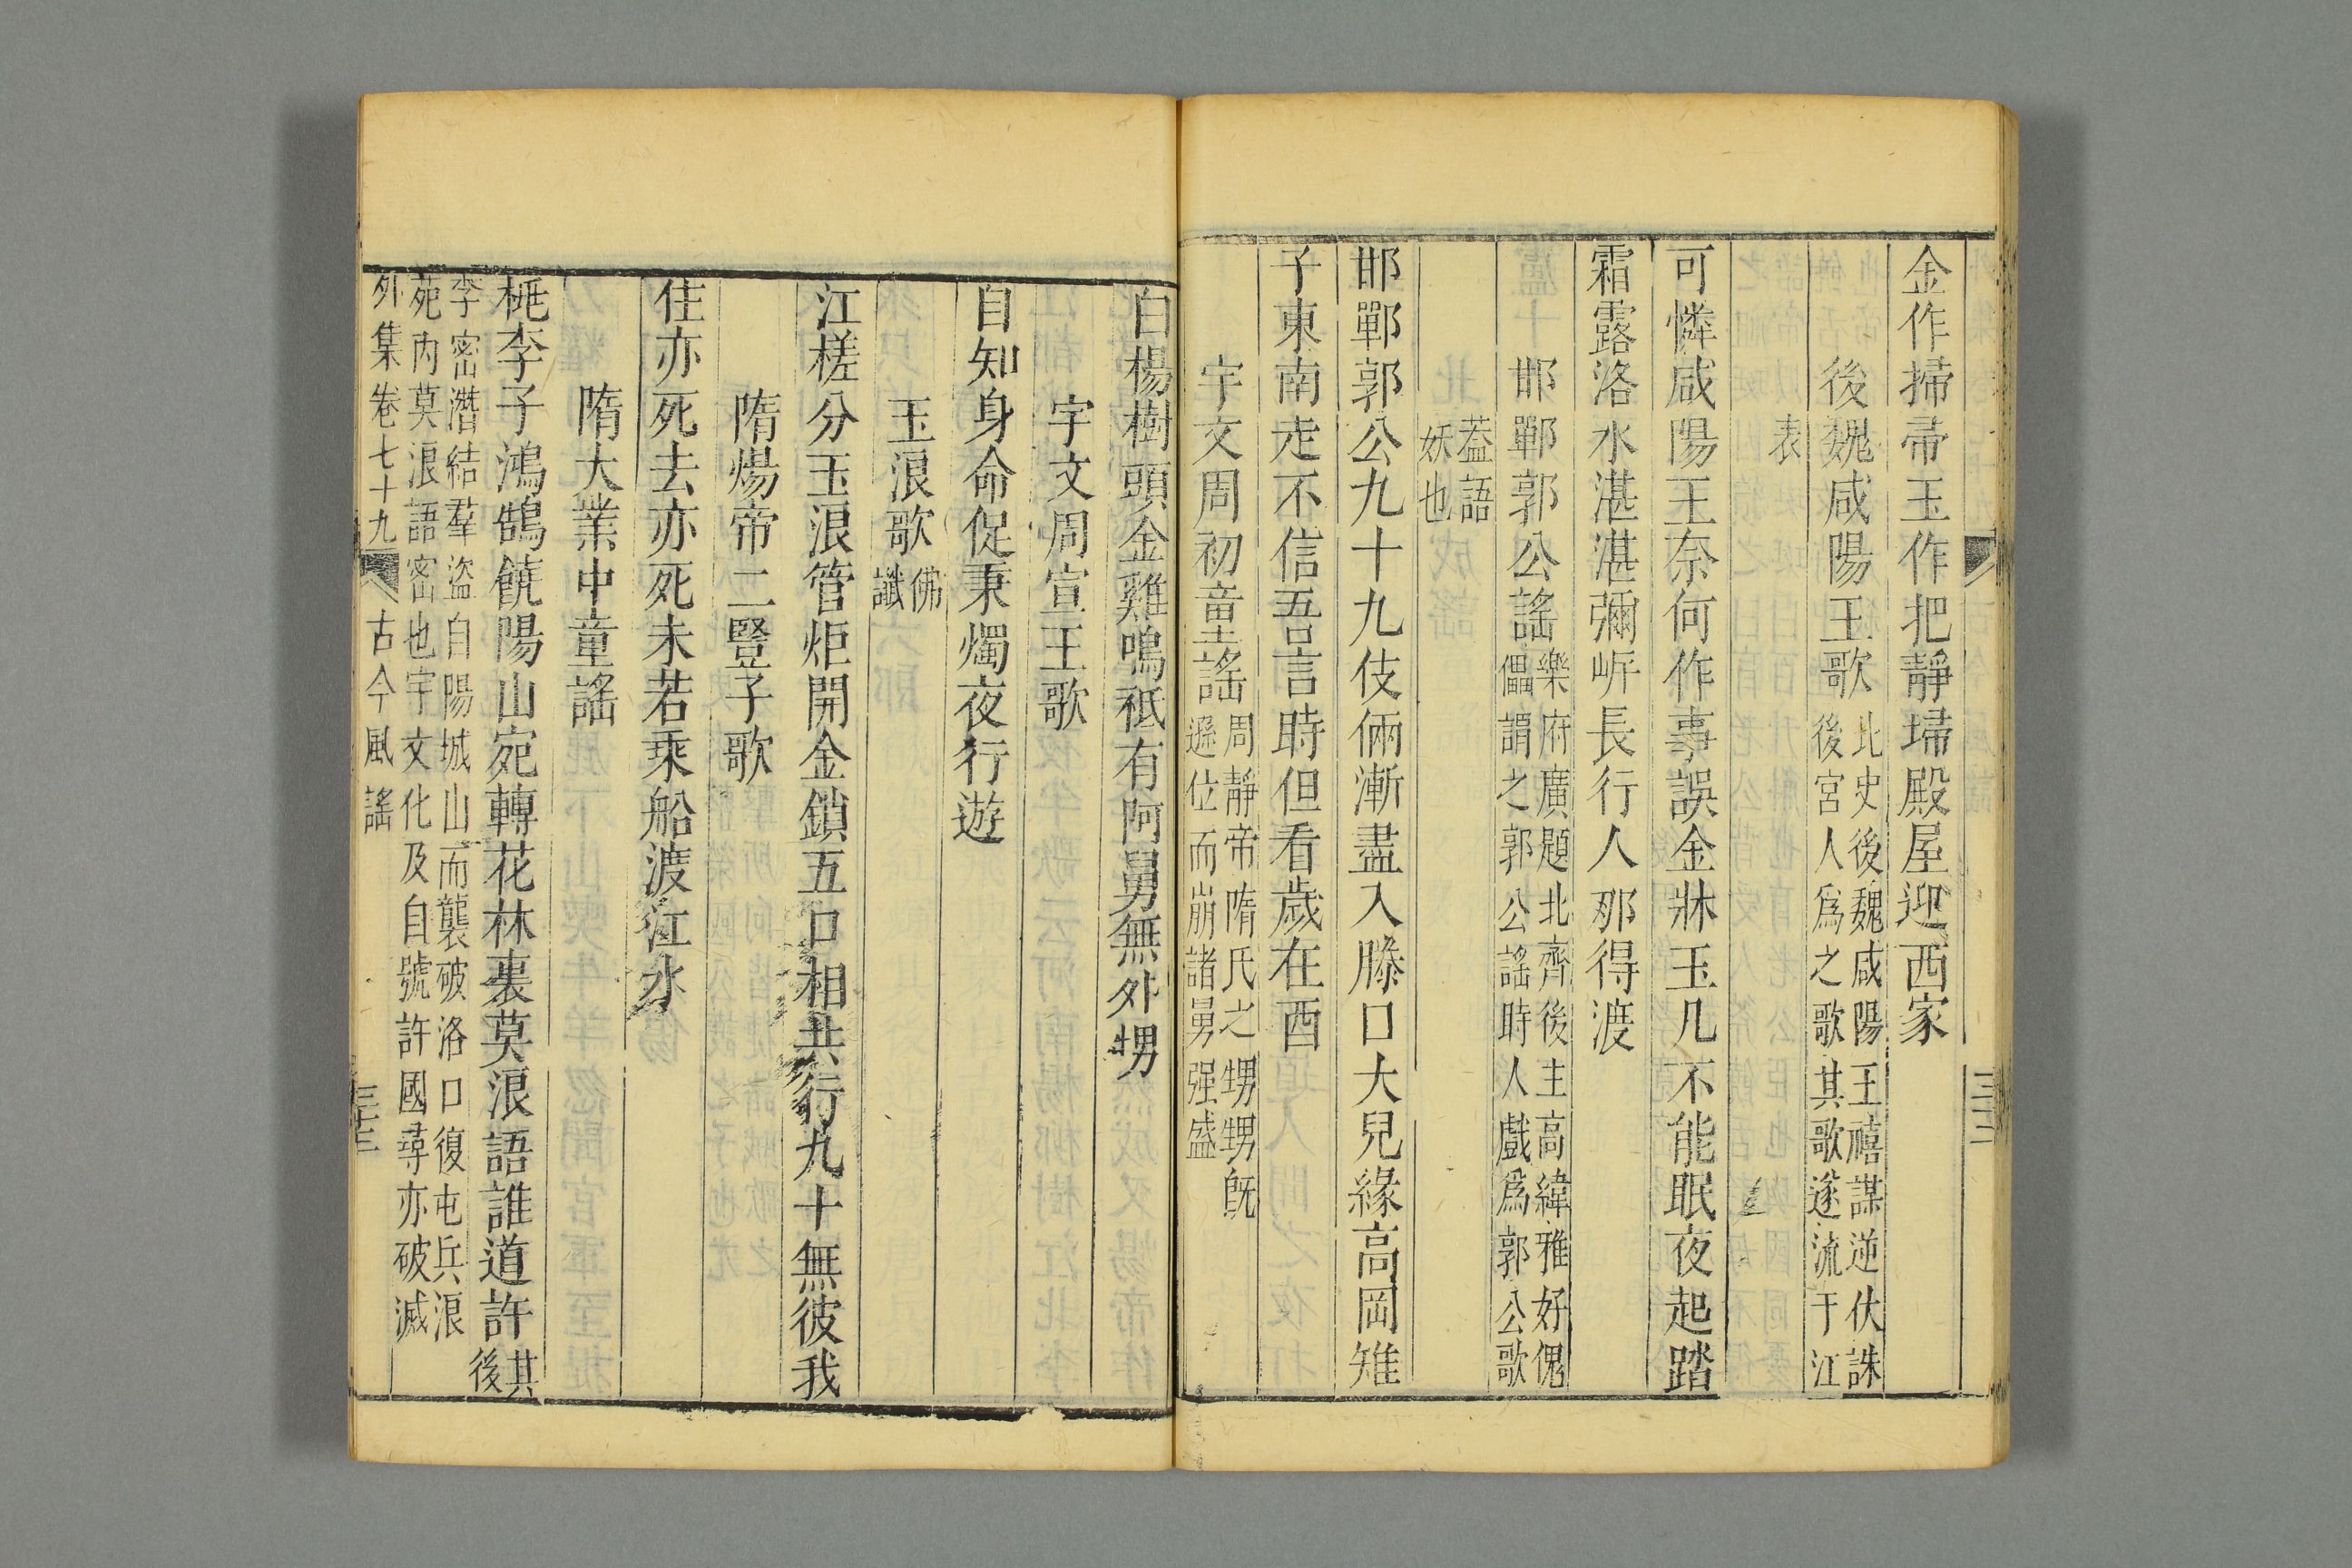 金作掃帚玉作把靜埽殿屋迎西家
後魏咸陽王歌
北史後魏咸陽王禧謀逆伏誅
後宮人爲之歌其歌遂流于江
表
可憐咸陽王奈何作事誤金牀玉几不能眠夜起踏
霜露洛水湛湛彌岍長行人那得渡
邯鄲郭公謠
樂府廣題北齊後主高緯雅好傀
儡謂之郭公謠時人戲爲郭公歌
葢語
妖也
邯鄲郭公九十九伎倆漸盡入滕口大兒緣高岡雉
子東南走不信吾言時但看歲在酉
宇文周初童謠
周靜帝隋氏之甥甥旣
遜位而崩諸舅强盛
白楊樹頭金雞鳴祗有阿舅無外甥
宇文周宣王歌
自知身命促秉燭夜行遊
玉浪歌
佛
讖
江槎分玉浪管炬開金鎖五口相共行九十無彼我
隋煬帝二豎子歌
住亦死去亦死未若乘船渡江水
隋大業中童謠
桃李子鴻鵠饒陽山宛轉花林裏莫浪語誰道許
其
後
李密潛結羣盜自陽城山而襲破洛口復屯兵浪
苑內莫浪語密也宇文化及自號許國尋亦破滅
外集卷七十九
古今風謠
三十三